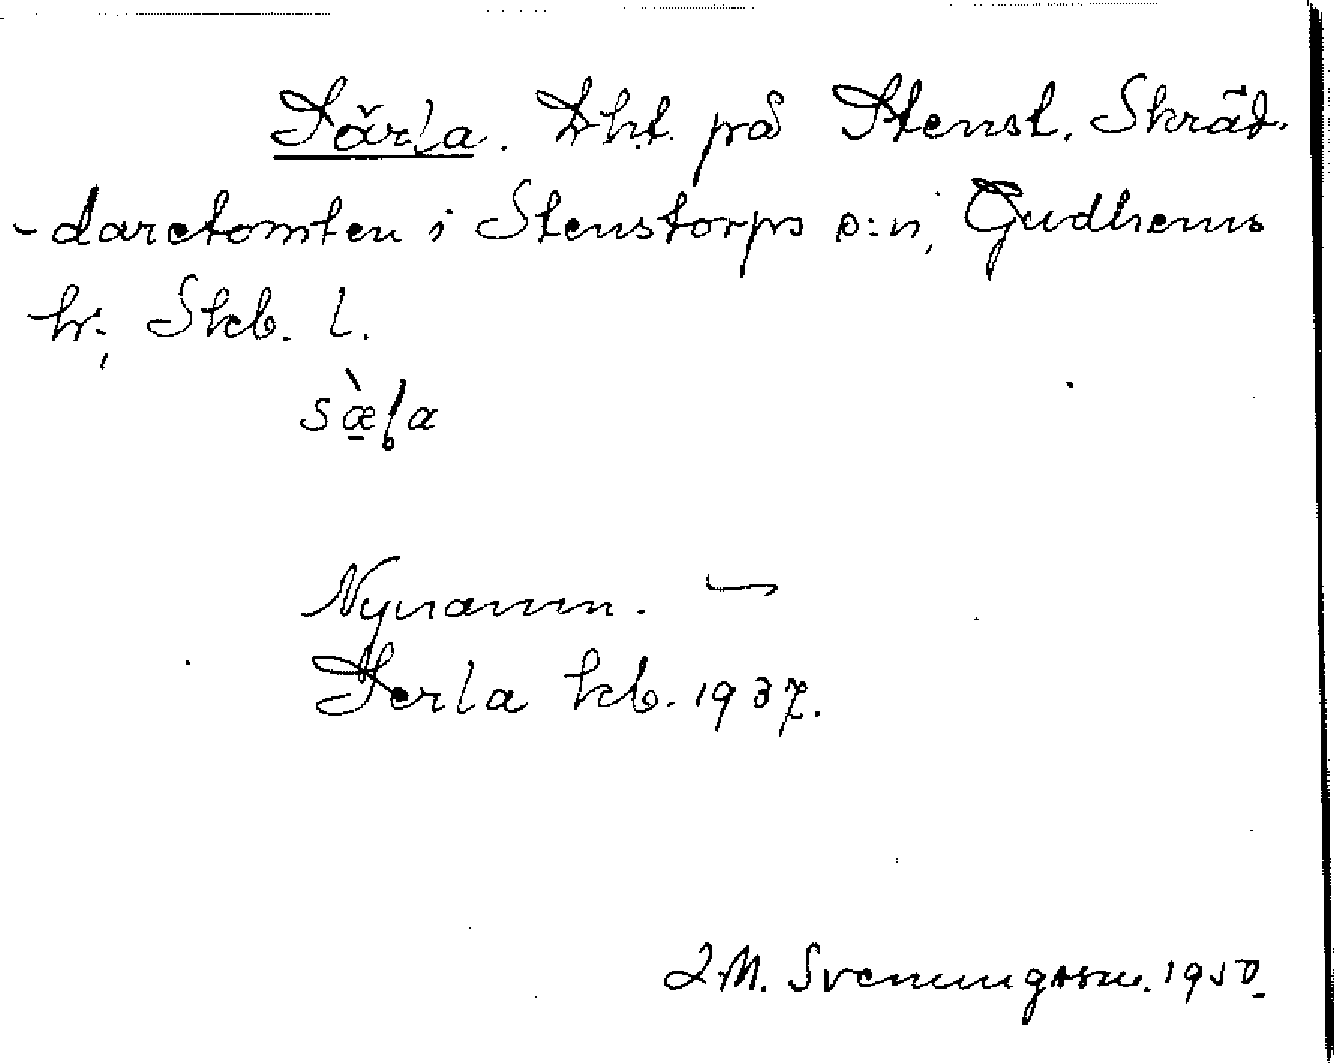 Särla. Lht. på Stenst. Skräd-
-daretomten i Stenstorps s:n, Gudhems
hr., Skb. l.
sæ̀ɭa
Nynamn. —
Serla kb. 1937.
L.M. Svenungsson. 1950.